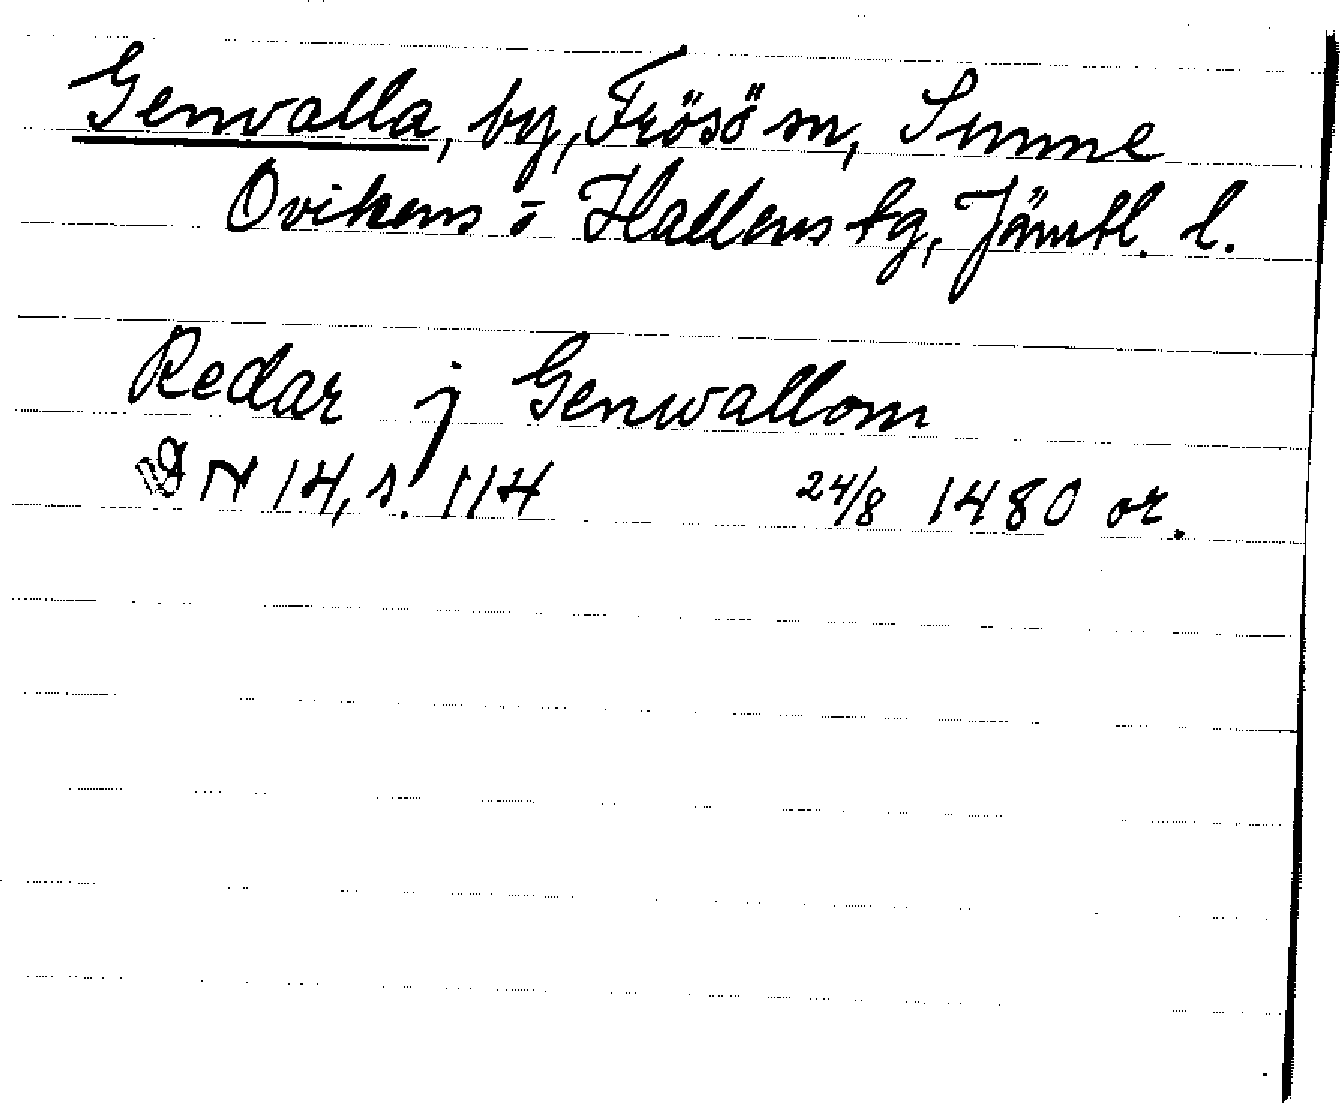 Genvalla, by, Frösö sn, Sunne
Ovikens o Hallens tg, Jämtl. l.
Redar j Genwallom
DN 14, s. 114 24/8 1480 or.